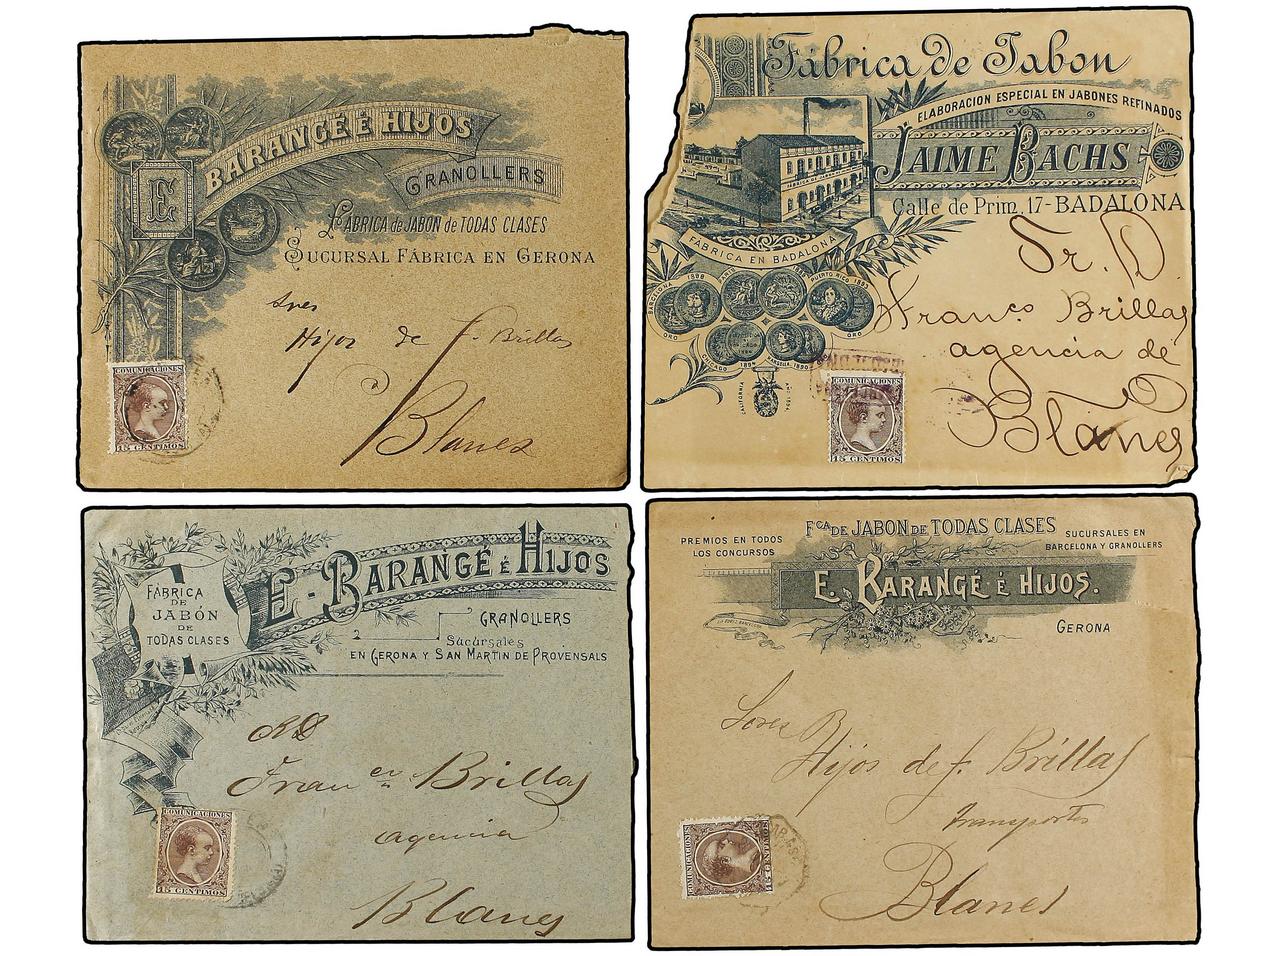 E. BARANGÉ É HIJOS
GRANOLLERS
FÁBRICA de JABON de TODAS CLASES
SUCURSAL FÁBRICA EN GERONA
Sres
Hijos de F. Brillas
Blanes
COMUNICACIONES
15 CENTIMOS
Fábrica de Jabon
ELABORACION ESPECIAL EN JABONES REFINADOS
JAIME BACHS
Calle de Prim, 17-BADALONA
FÁBRICA EN BADALONA
BARCELONA 1888
PARIS
PUERTO RICO 1893
ORO
ORO
CHICAGO 1894
MARSELLA 1890
CALIFORNIA
AÑO 1894
Sr. D.
Franco. Brillas
agencia de
Blanes
COMUNICACIONES
15 CENTIMOS
FÁBRICA
DE
JABÓN
DE
TODAS CLASES
E. BARANGÉ É HIJOS
GRANOLLERS
Sucursales
EN GERONA Y SAN MARTIN DE PROVENSALS
Francen Brillas
agencia
Blanes
COMUNICACIONES
15 CENTIMOS
PREMIOS EN TODOS
LOS CONCURSOS
FCA DE JABON DE TODAS CLASES
SUCURSALES EN
BARCELONA Y GRANOLLERS
E. BARANGÉ É HIJOS.
GERONA
Sres
Hijos de F. Brillas
transportes
Blanes
COMUNICACIONES
15 CENTIMOS